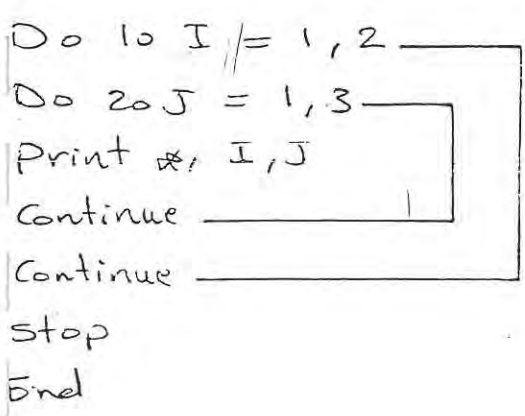 Do 10 I = 1, 2
Do 20 J = 1, 3
Print *, I, J
Continue
Continue
Stop
End